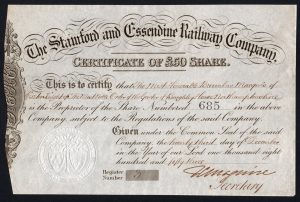 The Stamford and Essendine Railway Company.
CERTIFICATE OF £50 SHARE.
This is to certify that the Most Honorable Brownlow Marquis of
Exeter Knight of the Most Noble Order of the Garter of Burghley House Northamptonshire
is the Proprietor of the Share Numbered 685 in the above
Company, subject to the Regulations of the said Company.
Given under the Common Seal of the said
Company, the twenty third day of December
in the Year of our Lord one thousand eight
hundred and fifty three
Register
Number 3
Secretary